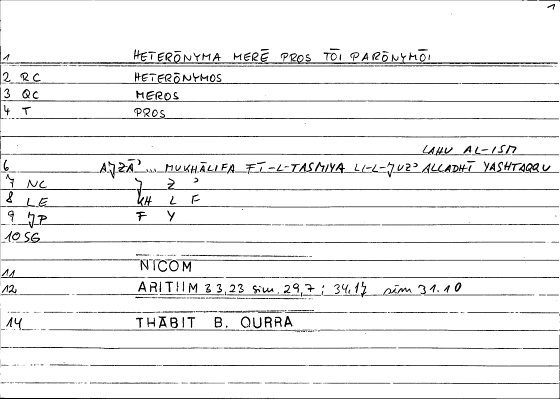 1
1 HETERŌNYMA MERĒ PROS TŌI PARŌNYMŌI
2 RC HETERŌNYMOS
3 QC MEROS
4 T PROS
LAHU AL-ISM
6 AJZĀʾ ... MUKHĀLIFA FĪ-L-TASMIYA LI-L-JUZʾ ALLADHĪ YASHTAQQU
7 NC J Z ʾ
8 LE KH L F
9 JP F Y
10 SG
11 NICOM
12 ARITIIM 33,23 sim. 29,7 ; 34,17 sim 31.10
14 THĀBIT B. QURRA